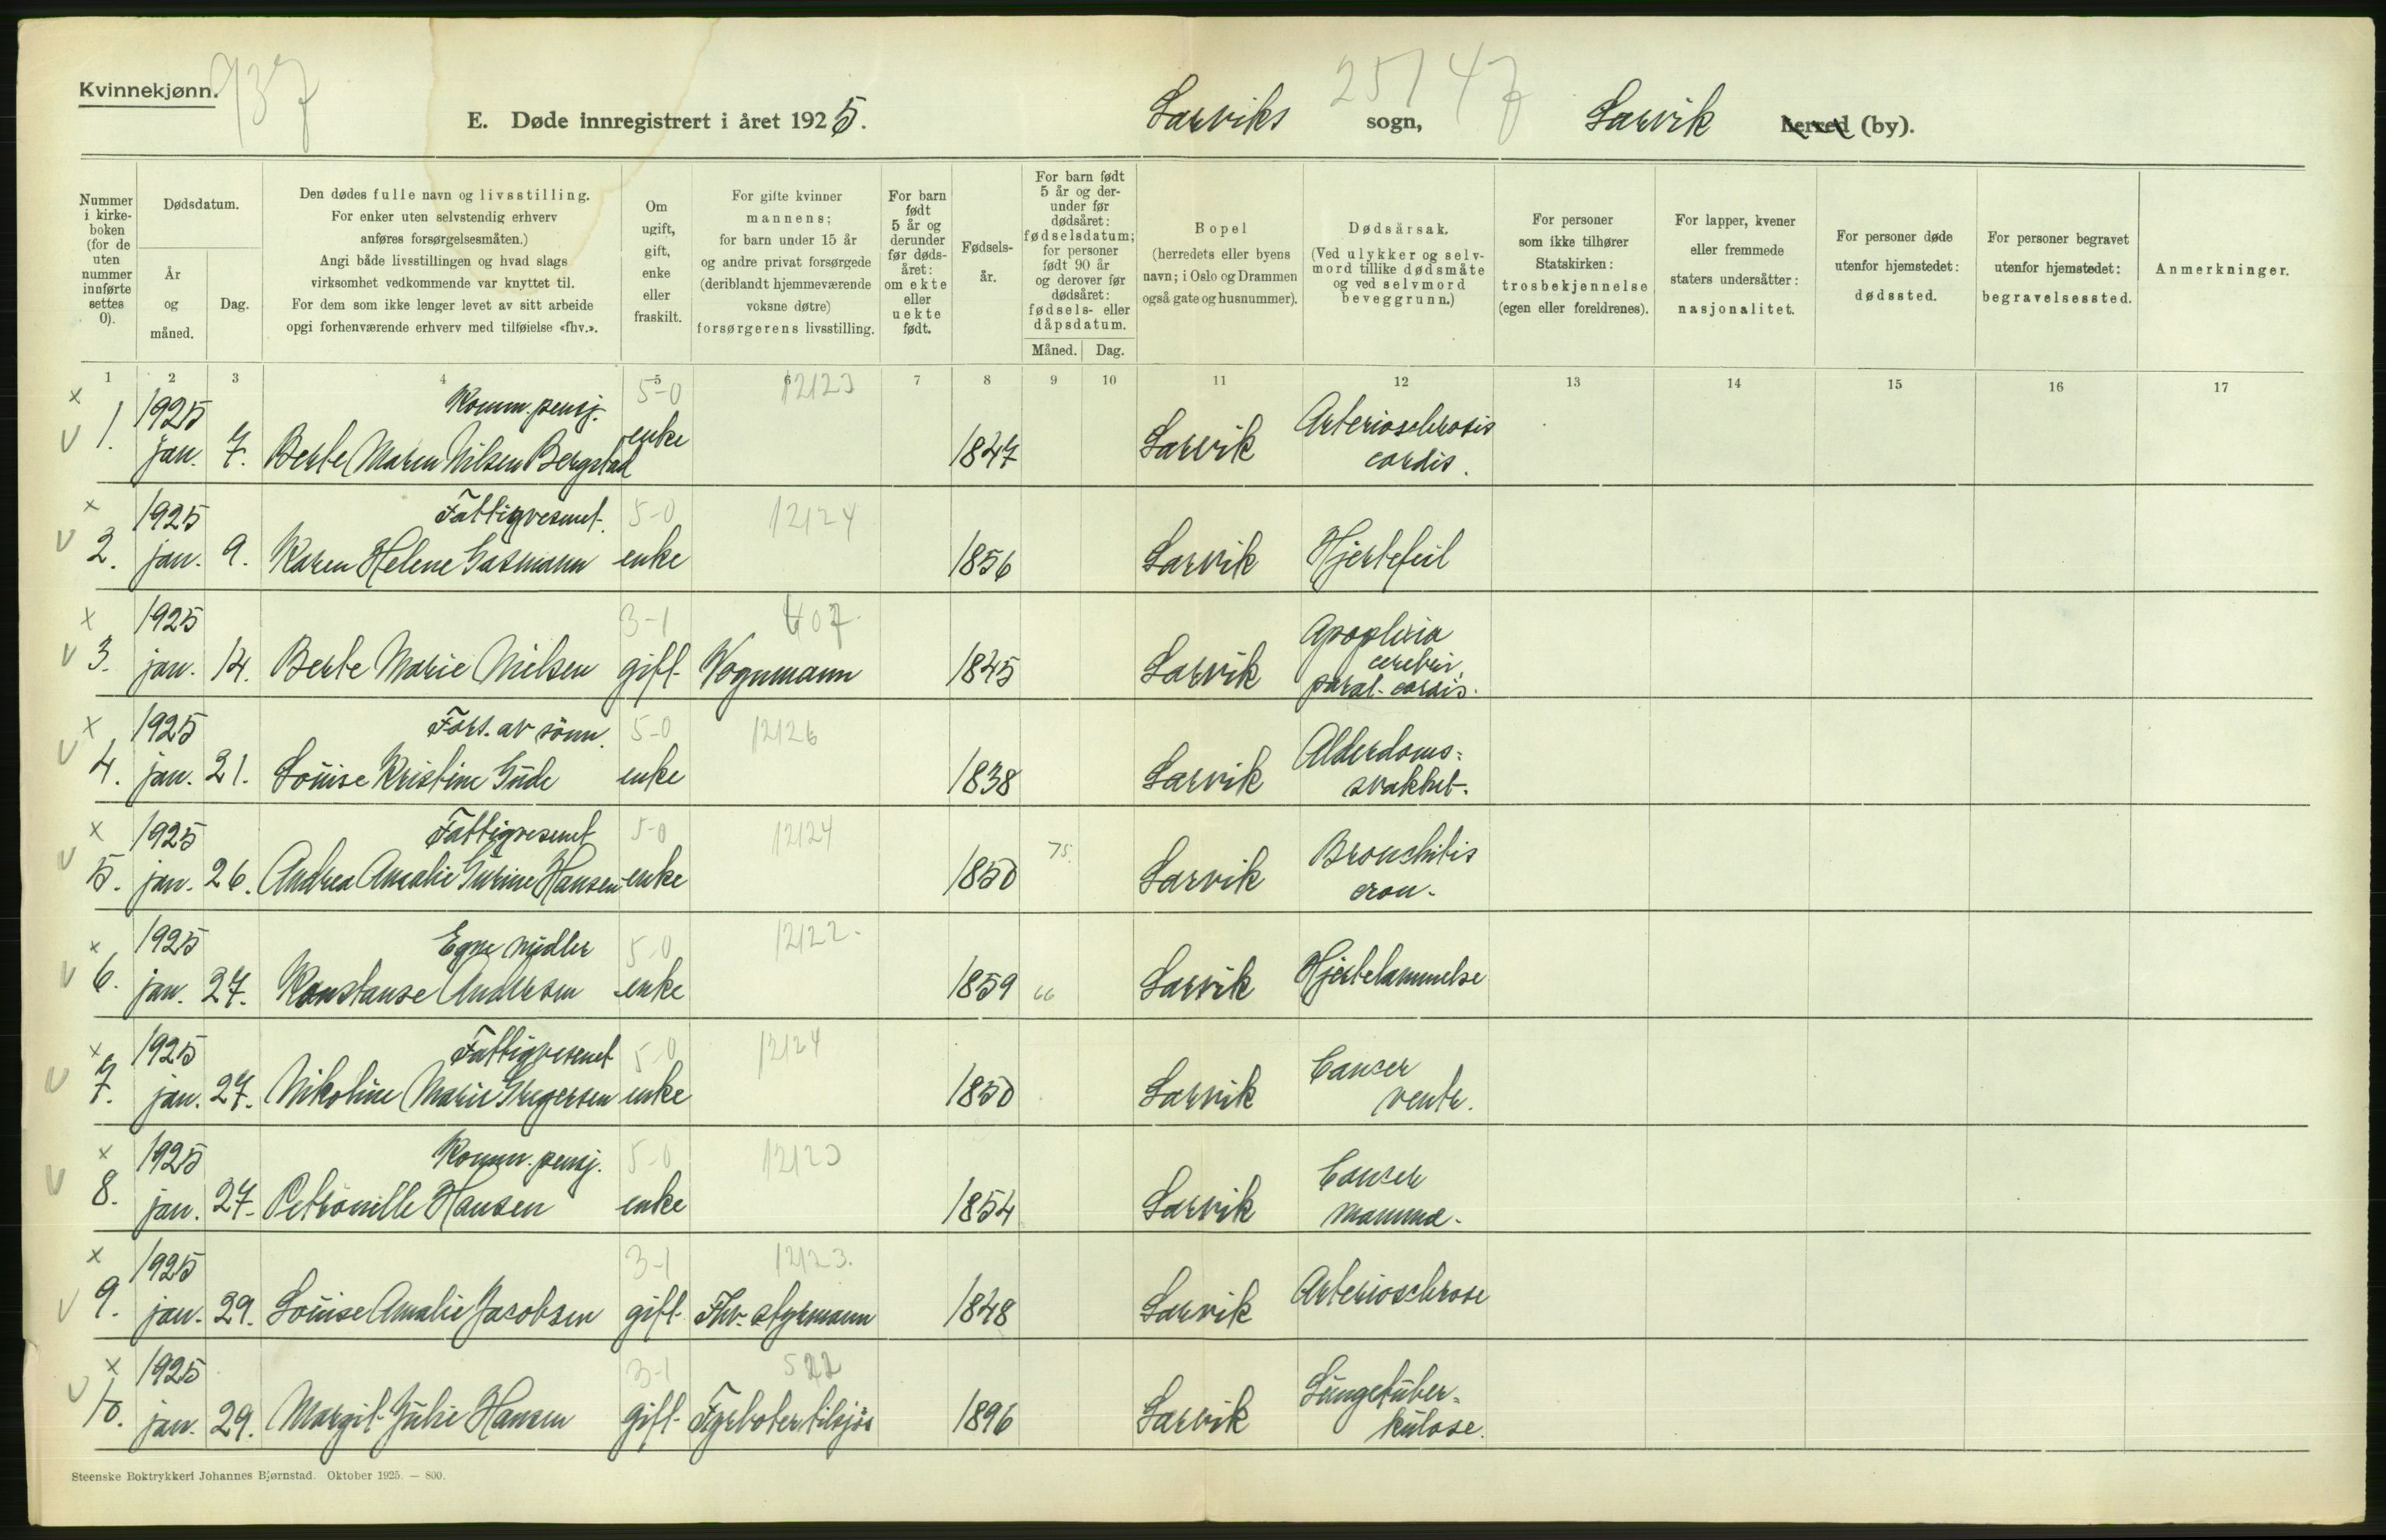 Kvinnekjønn.
737
E. Døde innregistrert i året 1925.
Larviks sogn,
25147
Larvik herred (by).
Nummer i kirke-boken (for de uten nummer innførte settes 0).
Dødsdatum.
År og måned.
Dag.
Den dødes fulle navn og livsstilling.
For enker uten selvstendig erhverv
anføres forsørgelsesmåten.)
Angi både livsstillingen og hvad slags
virksomhet vedkommende var knyttet til.
For dem som ikke lenger levet av sitt arbeide
opgi forhenværende erhverv med tilføielse «fhv.».
Om
ugift,
gift,
enke
eller
fraskilt.
For gifte kvinner
mannens;
for barn under 15 år
og andre privat forsørgede
(deriblandt hjemmeværende
voksne døtre)
forsørgerens livsstilling.
For barn
født
5 år og
derunder
før døds-
året:
om ekte
eller
uekte
født.
Fødsels-
år.
For barn født
5 år og der-
under før
dødsåret:
fødselsdatum;
for personer
født 90 år
og derover før
dødsåret:
fødsels- eller
dåpsdatum.
Måned. Dag.
Bopel
(herredets eller byens
navn; i Oslo og Drammen
også gate og husnummer).
Dødsårsak.
(Ved ulykker og selv-
mord tillike dødsmåte
og ved selvmord
beveggrunn.)
For personer
som ikke tilhører
Statskirken:
trosbekjennelse
(egen eller foreldrenes).
For lapper, kvener
eller fremmede
staters undersåtter:
nasjonalitet.
For personer døde
utenfor hjemstedet:
dødssted.
For personer begravet
utenfor hjemstedet:
begravelsessted.
Anmerkninger.
1 2 3 4 5 6 7 8 9 10 11 12 13 14 15 16 17
x 1925 Komm. pensj. 5-0 12123 Arteriosclerosis
v 1. jan. 7. Berte Maren Nilsen Bergstad enke 1847 Larvik cordis.
x 1925 Fattigvesenet. 5-0 12124
v 2. jan. 9. Karen Helene Gasmann enke 1856 Larvik Hjertefeil
x 1925 3-1 407 Apoplexia
cerebri,
v 3. jan. 14. Berte Marie Nielsen gift Vognmann 1845 Larvik paral. cordis.
x 1925 Fors. av sønn. 5-0 12126 Alderdoms-
v 4. jan. 21. Louise Kristine Gude enke 1838 Larvik svakhet.
x 1925 Fattigvesenet 5-0 12124 75. Bronchitis
v 5. jan. 26. Andrea Amalie Gurine Hansen enke 1850 Larvik cron.
x 1925 Egne midler 5-0 12122.
v 6. jan. 27. Konstanse Andersen enke 1859 66 Larvik Hjertelammelse
x 1925 Fattigvesenet 5-0 12124 Cancer
v 7. jan. 27. Nikoline Marie Gregersen enke 1850 Larvik ventr.
x 1925 Komm. pensj. 5-0 12123 Cancer
v 8. jan. 27. Petronille Hansen enke 1854 Larvik mamma.
x 1925 3-1 12123. Arteriosclerose
v 9. jan. 29. Louise Amalie Jacobsen gift Fhv. styrmann 1848 Larvik
x 1925 3-1 522 Lungetuber-
v 10. jan. 29. Margit Julie Hansen gift Fyrbøter tilsjøs 1896 Larvik kulose.
Steenske Boktrykkeri Johannes Bjørnstad. Oktober 1925. — 800.